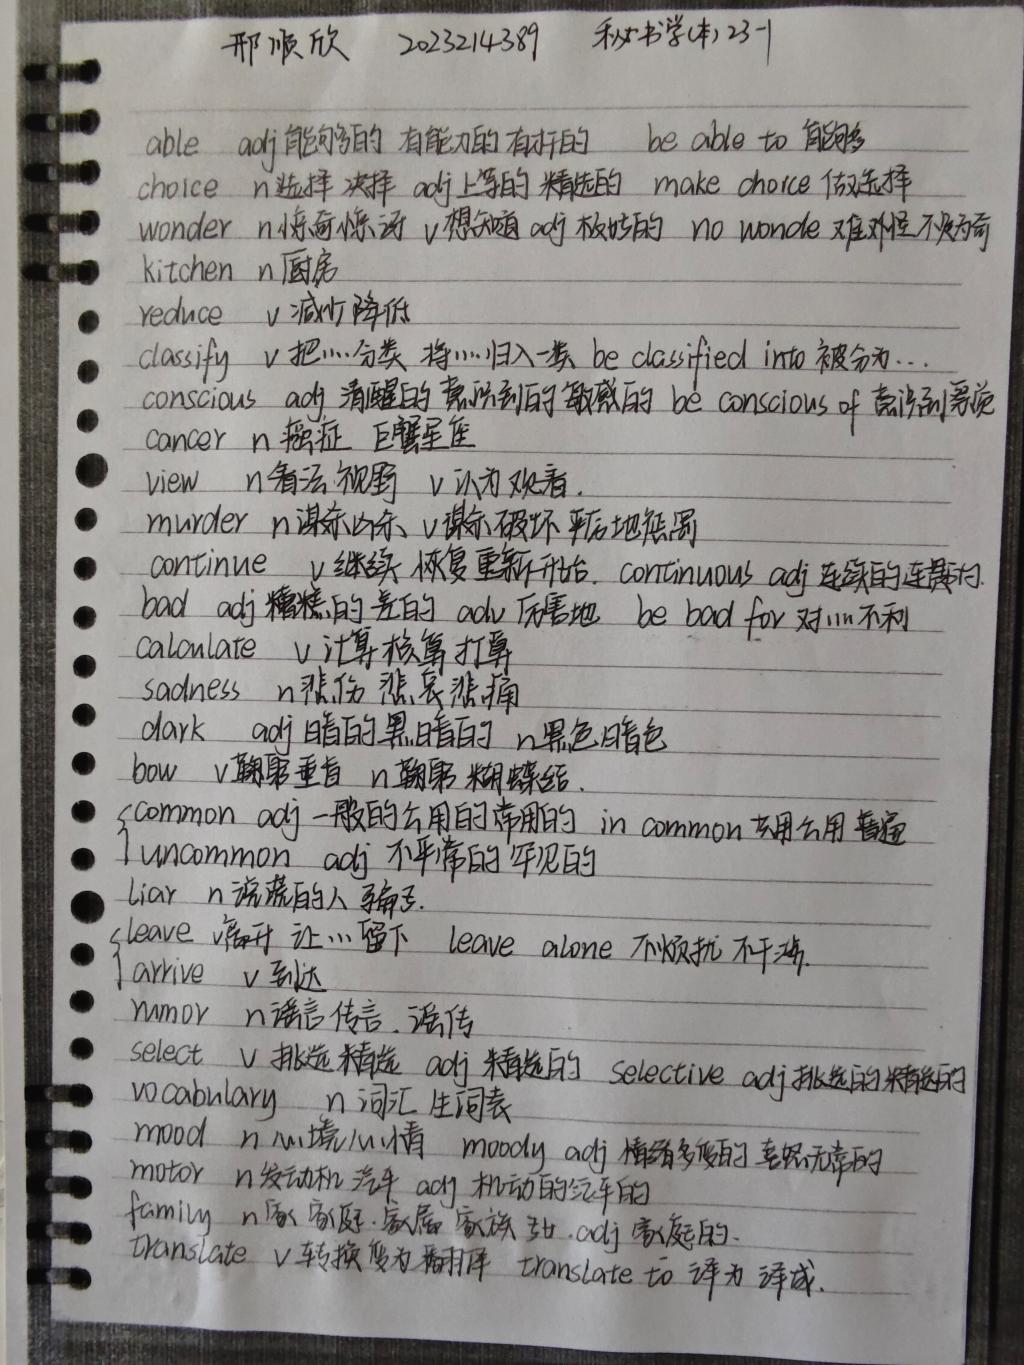 邢顺欣 2023214389 秘书学(本)23-1
able adj能够的 有能力的 有才的 be able to 能够
choice n选择 决择 adj上等的 精选的 make choice 做选择
wonder n惊奇惊讶 v想知道 adj极妙的 no wonde 难怪 不足为奇
kitchen n厨房
reduce v减少降低
classify v把……分类 将……归入一类 be classified into 被分为...
conscious adj 清醒的 意识到的 敏感的 be conscious of 意识到 察觉
cancer n癌症 巨蟹星座
view n看法 视野 v认为 观看.
murder n谋杀凶杀、v谋杀破坏 地惩罚
continue v继续 恢复重新开始. continuous adj 连续的连贯的.
bad adj糟糕的差的 adv厉害地 be bad for 对……不利
calculate v计算核算打算
sadness n悲伤 悲哀悲痛
dark adj暗的黑暗的 n黑色暗色
bow v鞠躬垂首 n鞠躬 蝴蝶结.
common adj 一般的公用的常用的 in common 共用公用 普遍
uncommon adj 不平常的 罕见的
liar n说谎的人 骗子.
leave v离开 让…留下 leave alone 不烦扰 不干涉.
arrive v到达
rumor n谣言传言.谣传
select v挑选精选 adj精选的 selective adj挑选的精选的
vocabulary n词汇 生词表
mood n心境心情 moody adj情绪多变的 喜怒无常的
motor n发动机 汽车 adj机动的汽车的
family n家 家庭.家属 家族 .adj家庭的.
translate v转换变为翻译 translate to 译为 译成.